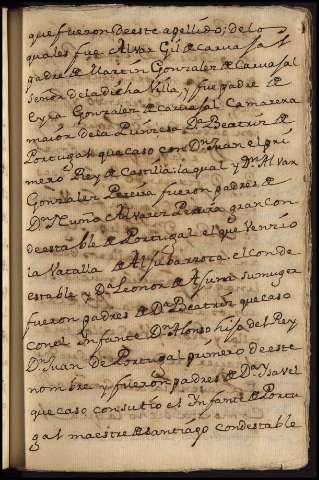 que fueron de este apellido; de lo
quales fue Alvar Gil de Carvajal
padre de Martin Gonzalez de Carvajal
señor de la dicha Villa, y fue padre de
Gonzalez de Carvajal Camarera
maior de la Reina Dª Beatriz de
Portugal que caso con Dn Juan el pri
mero Rey de Castilla la qual y Dn Alvar
Gonzalez Pereira fueron padres de
Dn Nuño Alvarez Pereira gran con
deestable de Portugal el que Vencio
la Vatalla de Aljubarrota el conde
estable y Dª Leonor de Alvin su muger
fueron padres de Dª Beatriz que caso
con el Infante Dn Alonso hijo del Rey
Dn Juan de Portugal primero de este
nombre y fueron padres de Dª Ysavel
que caso con su tio el Infante de Portu
gal maestre de Santiago condestable